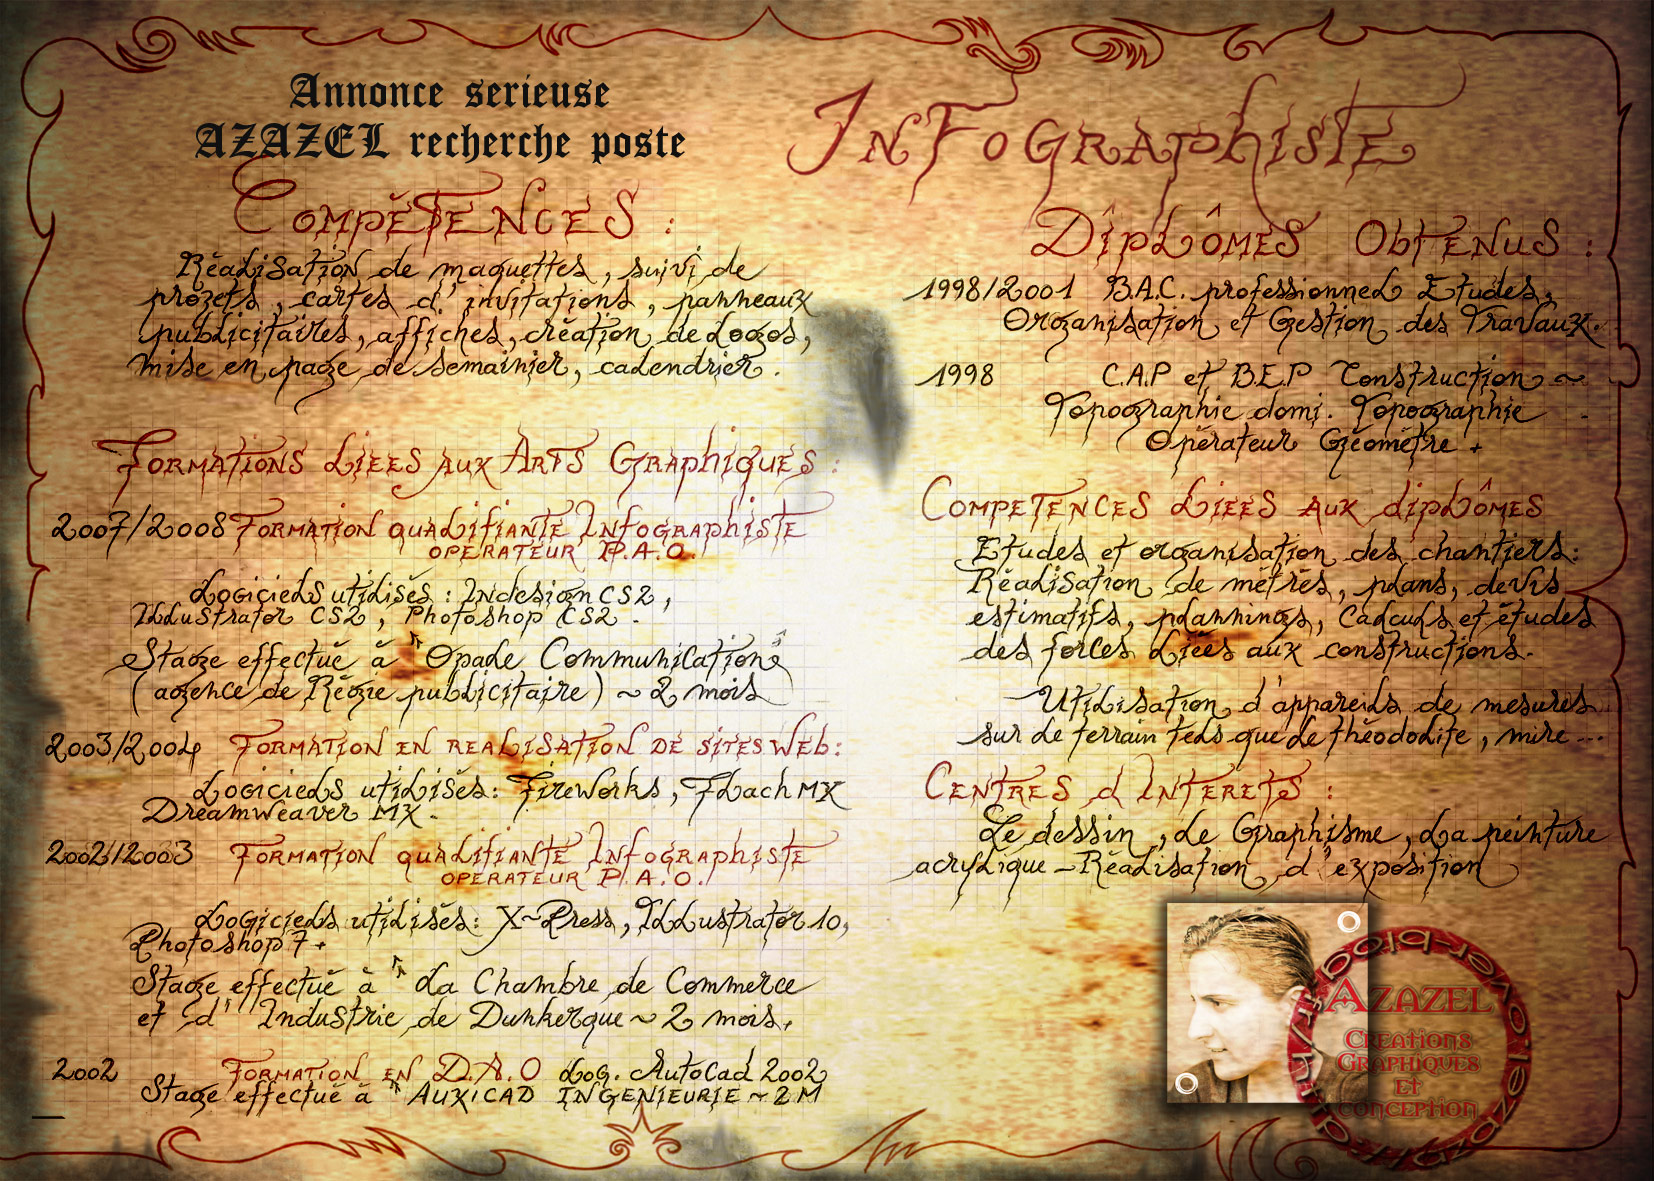 Annonce serieuse
AZAZEL recherche poste
Compétences :
Réalisation de maquettes, suivi de
projets, cartes d'invitations, panneaux
publicitaires, affiches, création de logos,
mise en page de semainier, calendrier.
Formations liées aux Arts Graphiques :
2007/2008 Formation qualifiante Infographiste
operateur P.A.O.
Logiciels utilisés : Indesign CS2,
Illustrator CS2, Photoshop CS2.
Stage effectué à "Opale Communications"
(agence de Régie publicitaire) ~ 2 mois
2003/2004 Formation en realisation de sites Web :
Logiciels utilisés : Fireworks, Flach MX
Dreamweaver MX.
2002/2003 Formation qualifiante Infographiste
operateur P.A.O.
Logiciels utilisés : X~Press, Illustrator 10,
Photoshop 7.
Stage effectué à "La Chambre de Commerce
et d'Industrie de Dunkerque ~ 2 mois.
2002 Formation en D.A.O Log. AutoCad 2002
Stage effectué à "AUXICAD INGENIEURIE ~ 2 M
Infographiste
Diplômes Obtenus :
1998/2001 B.A.C. professionnel Etudes,
Organisation et Gestion des Travaux.
1998 C.A.P et B.E.P Construction ~
Topographie domi. Topographie
Opérateur Géomètre.
Competences liees aux diplômes
Etudes et organisation des chantiers :
Réalisation de métrés, plans, devis
estimatifs, plannings, Calculs et études
des forces liées aux constructions.
Utilisation d'appareils de mesures
sur le terrain tels que le théodolite, mire ...
Centres d'Interets :
Le dessin, le Graphisme, la peinture
acrylique - Réalisation d'exposition
AZAZEL
Creations
Graphiques
et
conception
http://azazel.over-blog